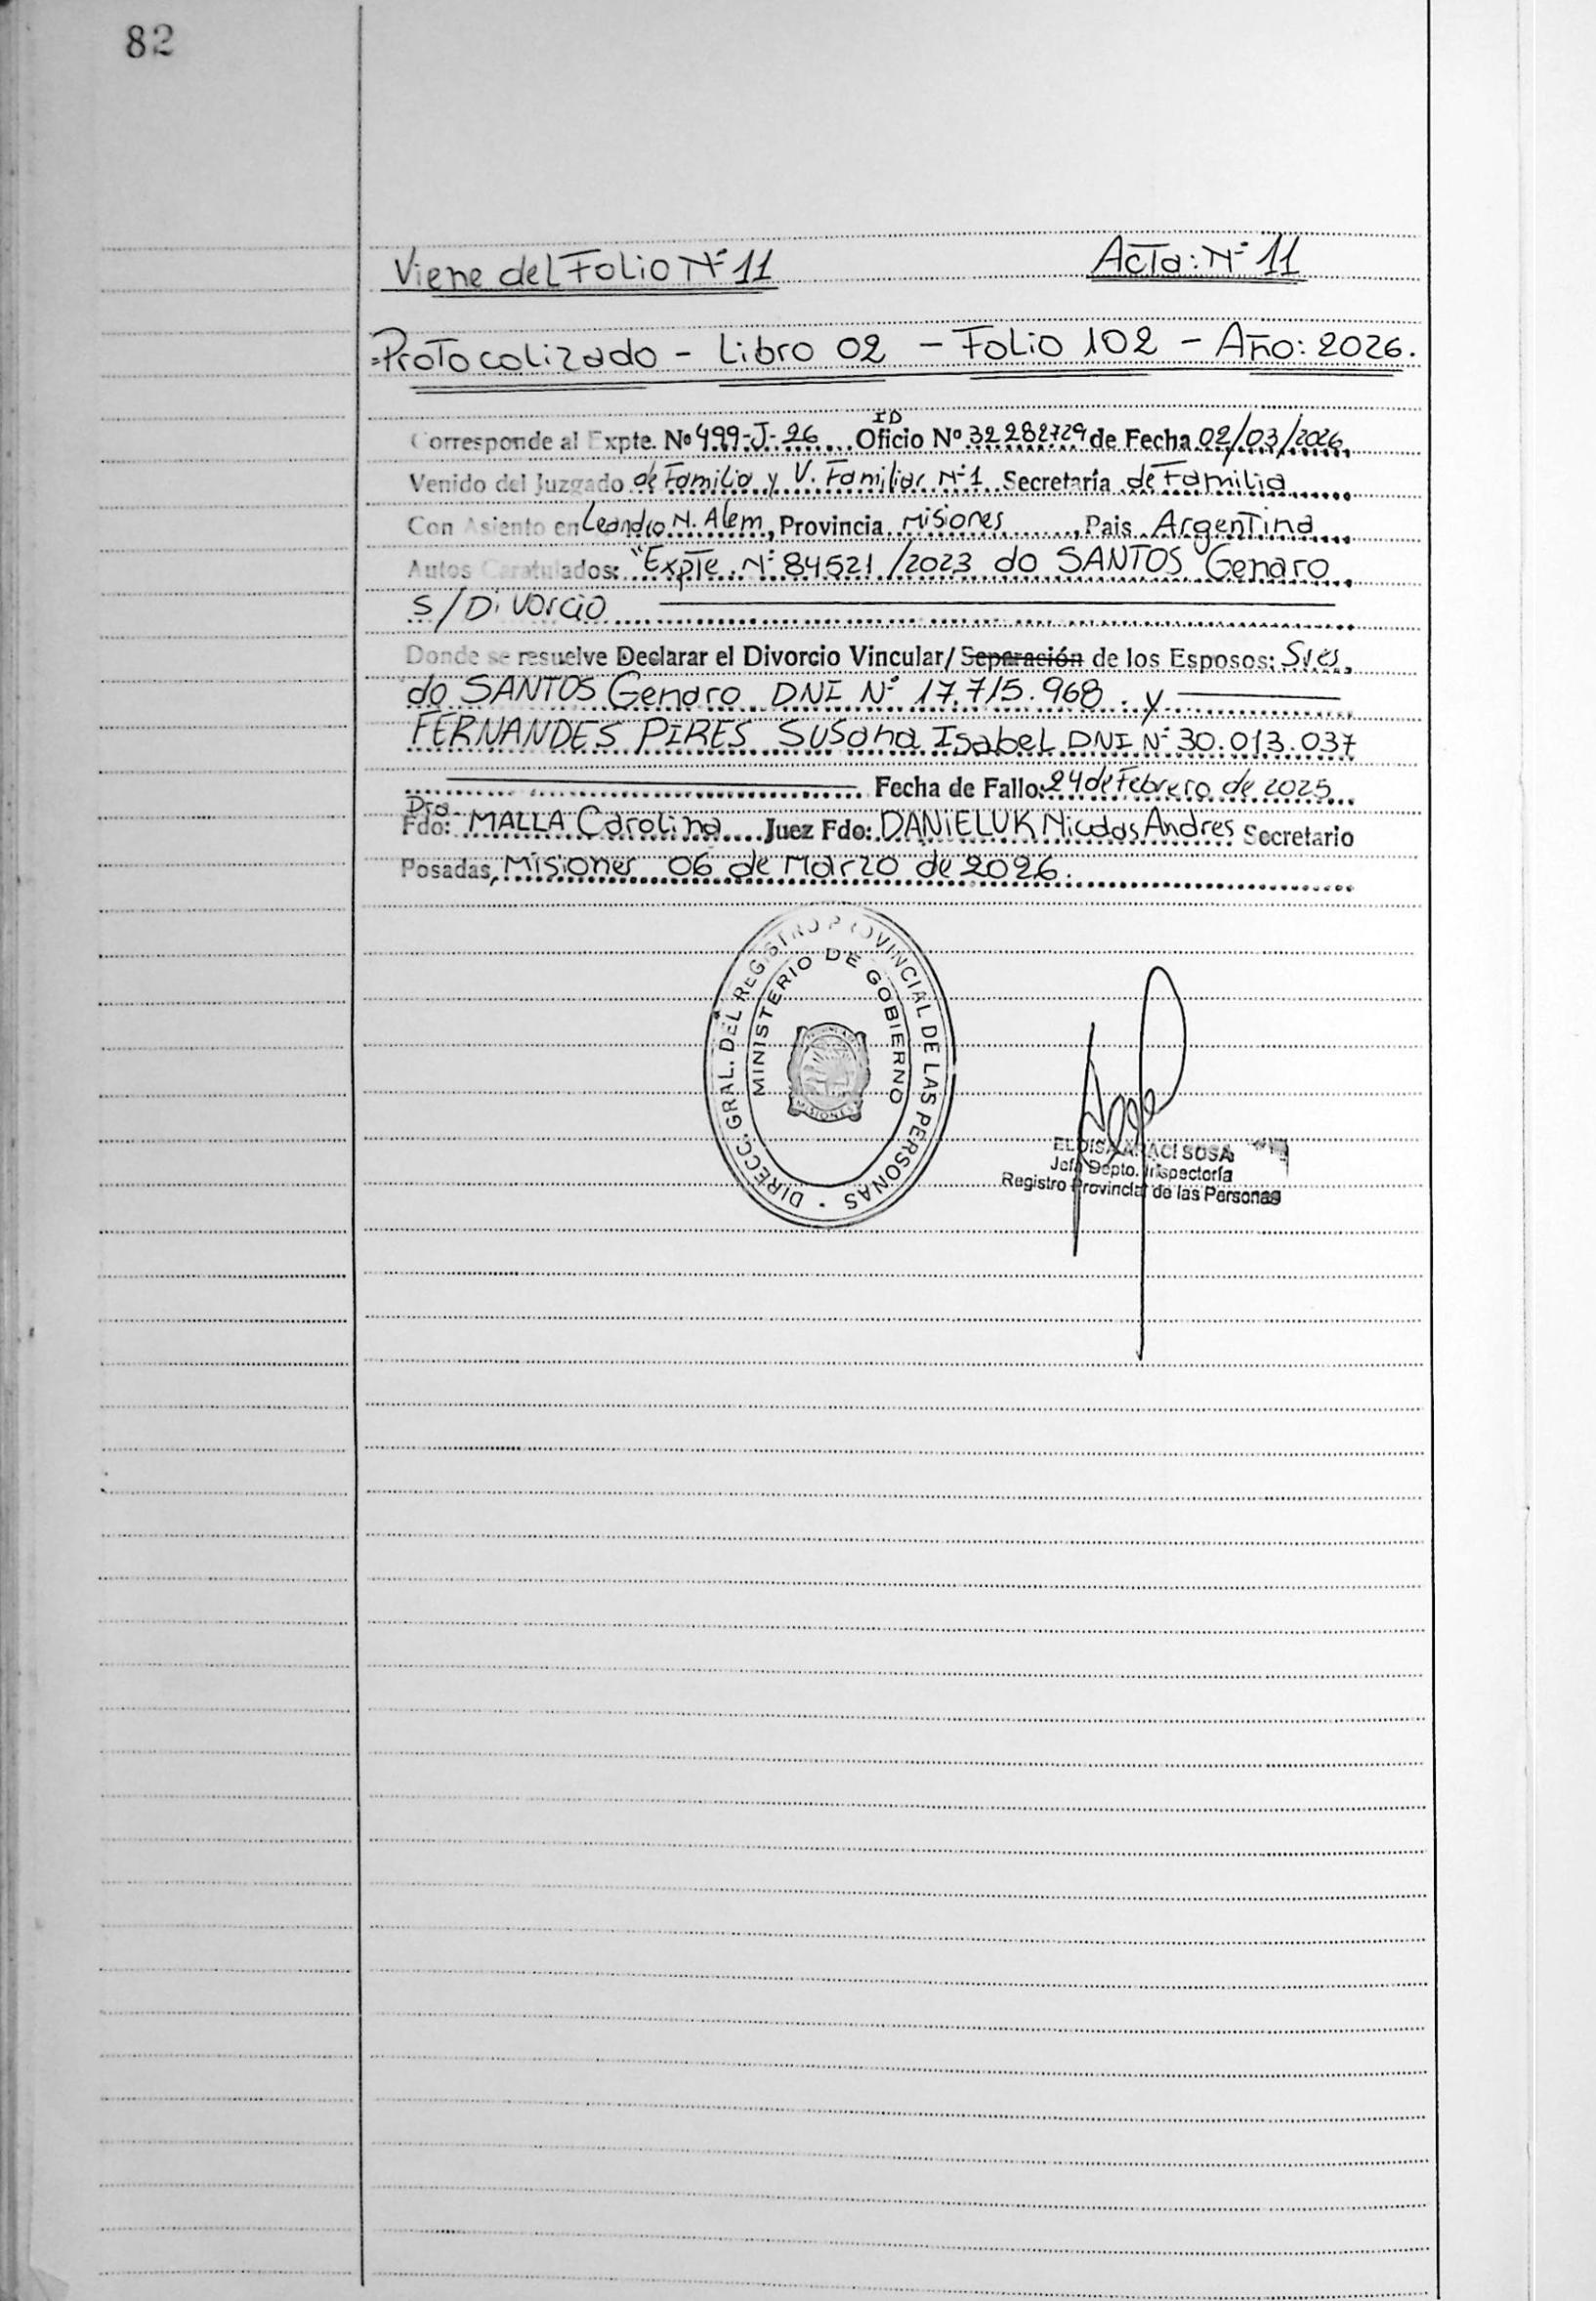 82
Viene del Folio Nº 11 Acta: Nº 11
=Protocolizado - Libro 02 - Folio 102 - Año: 2026.
ID
Corresponde al Expte. Nº 499-J-26 Oficio Nº 32282729 de Fecha 02/03/2026
Venido del Juzgado de Familia y V. Familiar Nº 1 Secretaría de Familia
Con Asiento en Leandro N. Alem, Provincia Misiones, Pais Argentina
Autos Caratulados: "Expte. Nº 84521/2023 do SANTOS Genaro
S/Divorcio
Donde se resuelve Declarar el Divorcio Vincular/ Separación de los Esposos: Sres.
do SANTOS Genaro DNI Nº 17.715.968 y
FERNANDES PIRES Susana Isabel DNI Nº 30.013.037
Fecha de Fallo: 24 de Febrero de 2025
Dra
Fdo: MALLA Carolina Juez Fdo: DANIELUK Nicolas Andres Secretario
Posadas, Misiones 06 de Marzo de 2026.
DIRECC. GRAL. DEL REGISTRO PROVINCIAL DE LAS PERSONAS
MINISTERIO DE GOBIERNO
MISIONES
ELOISA ARACI SOSA
Jefa Depto. Inspectoría
Registro Provincial de las Personas